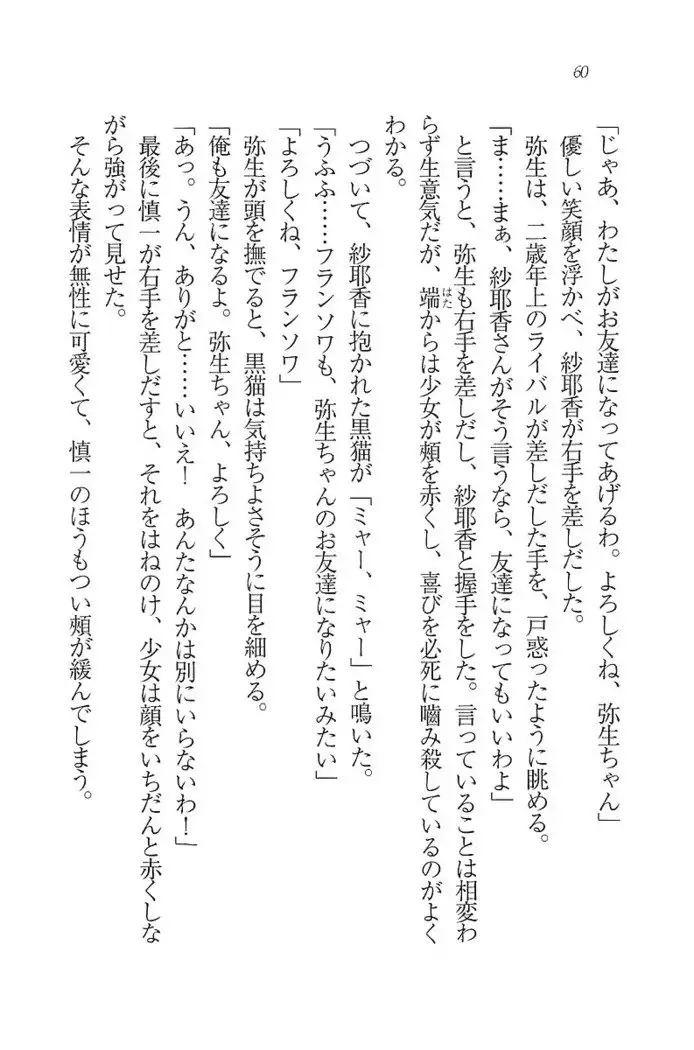 60
「じゃあ、わたしがお友達になってあげるわ。よろしくね、弥生ちゃん」
優しい笑顔を浮かべ、紗耶香が右手を差しだした。
弥生は、二歳年上のライバルが差しだした手を、戸惑ったように眺める。
「ま……まぁ、紗耶香さんがそう言うなら、友達になってもいいわよ」
と言うと、弥生も右手を差しだし、紗耶香と握手をした。言っていることは相変わ
らず生意気だが、端からは少女が頰を赤くし、喜びを必死に嚙み殺しているのがよく
はた
わかる。
つづいて、紗耶香に抱かれた黒猫が「ミャー、ミャー」と鳴いた。
「うふふ……フランソワも、弥生ちゃんのお友達になりたいみたい」
「よろしくね、フランソワ」
弥生が頭を撫でると、黒猫は気持ちよさそうに目を細める。
「俺も友達になるよ。弥生ちゃん、よろしく」
「あっ。うん、ありがと……いいえ！　あんたなんかは別にいらないわ！」
最後に慎一が右手を差しだすと、それをはねのけ、少女は顔をいちだんと赤くしな
がら強がって見せた。
そんな表情が無性に可愛くて、慎一のほうもつい頰が緩んでしまう。